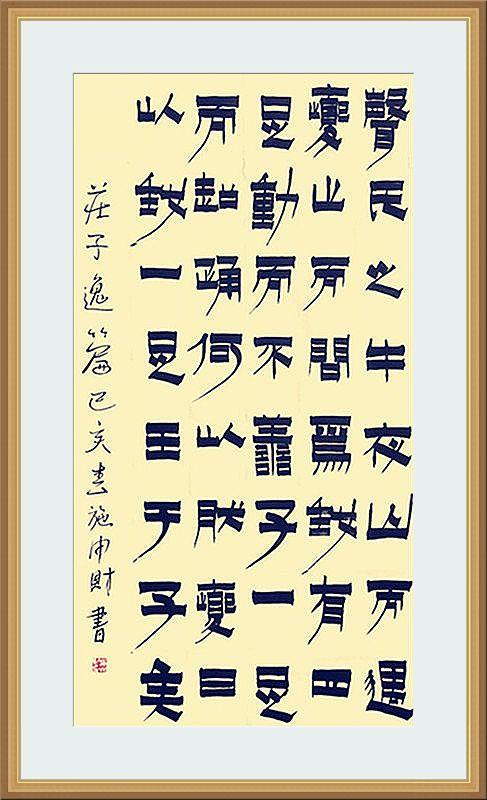 聲氏之牛夜亡而遇
夔止而間爲我有四
足動而不善子一足
而超踊何以然夔曰
以我一足王于子矣
莊子逸篇己亥春施申財書